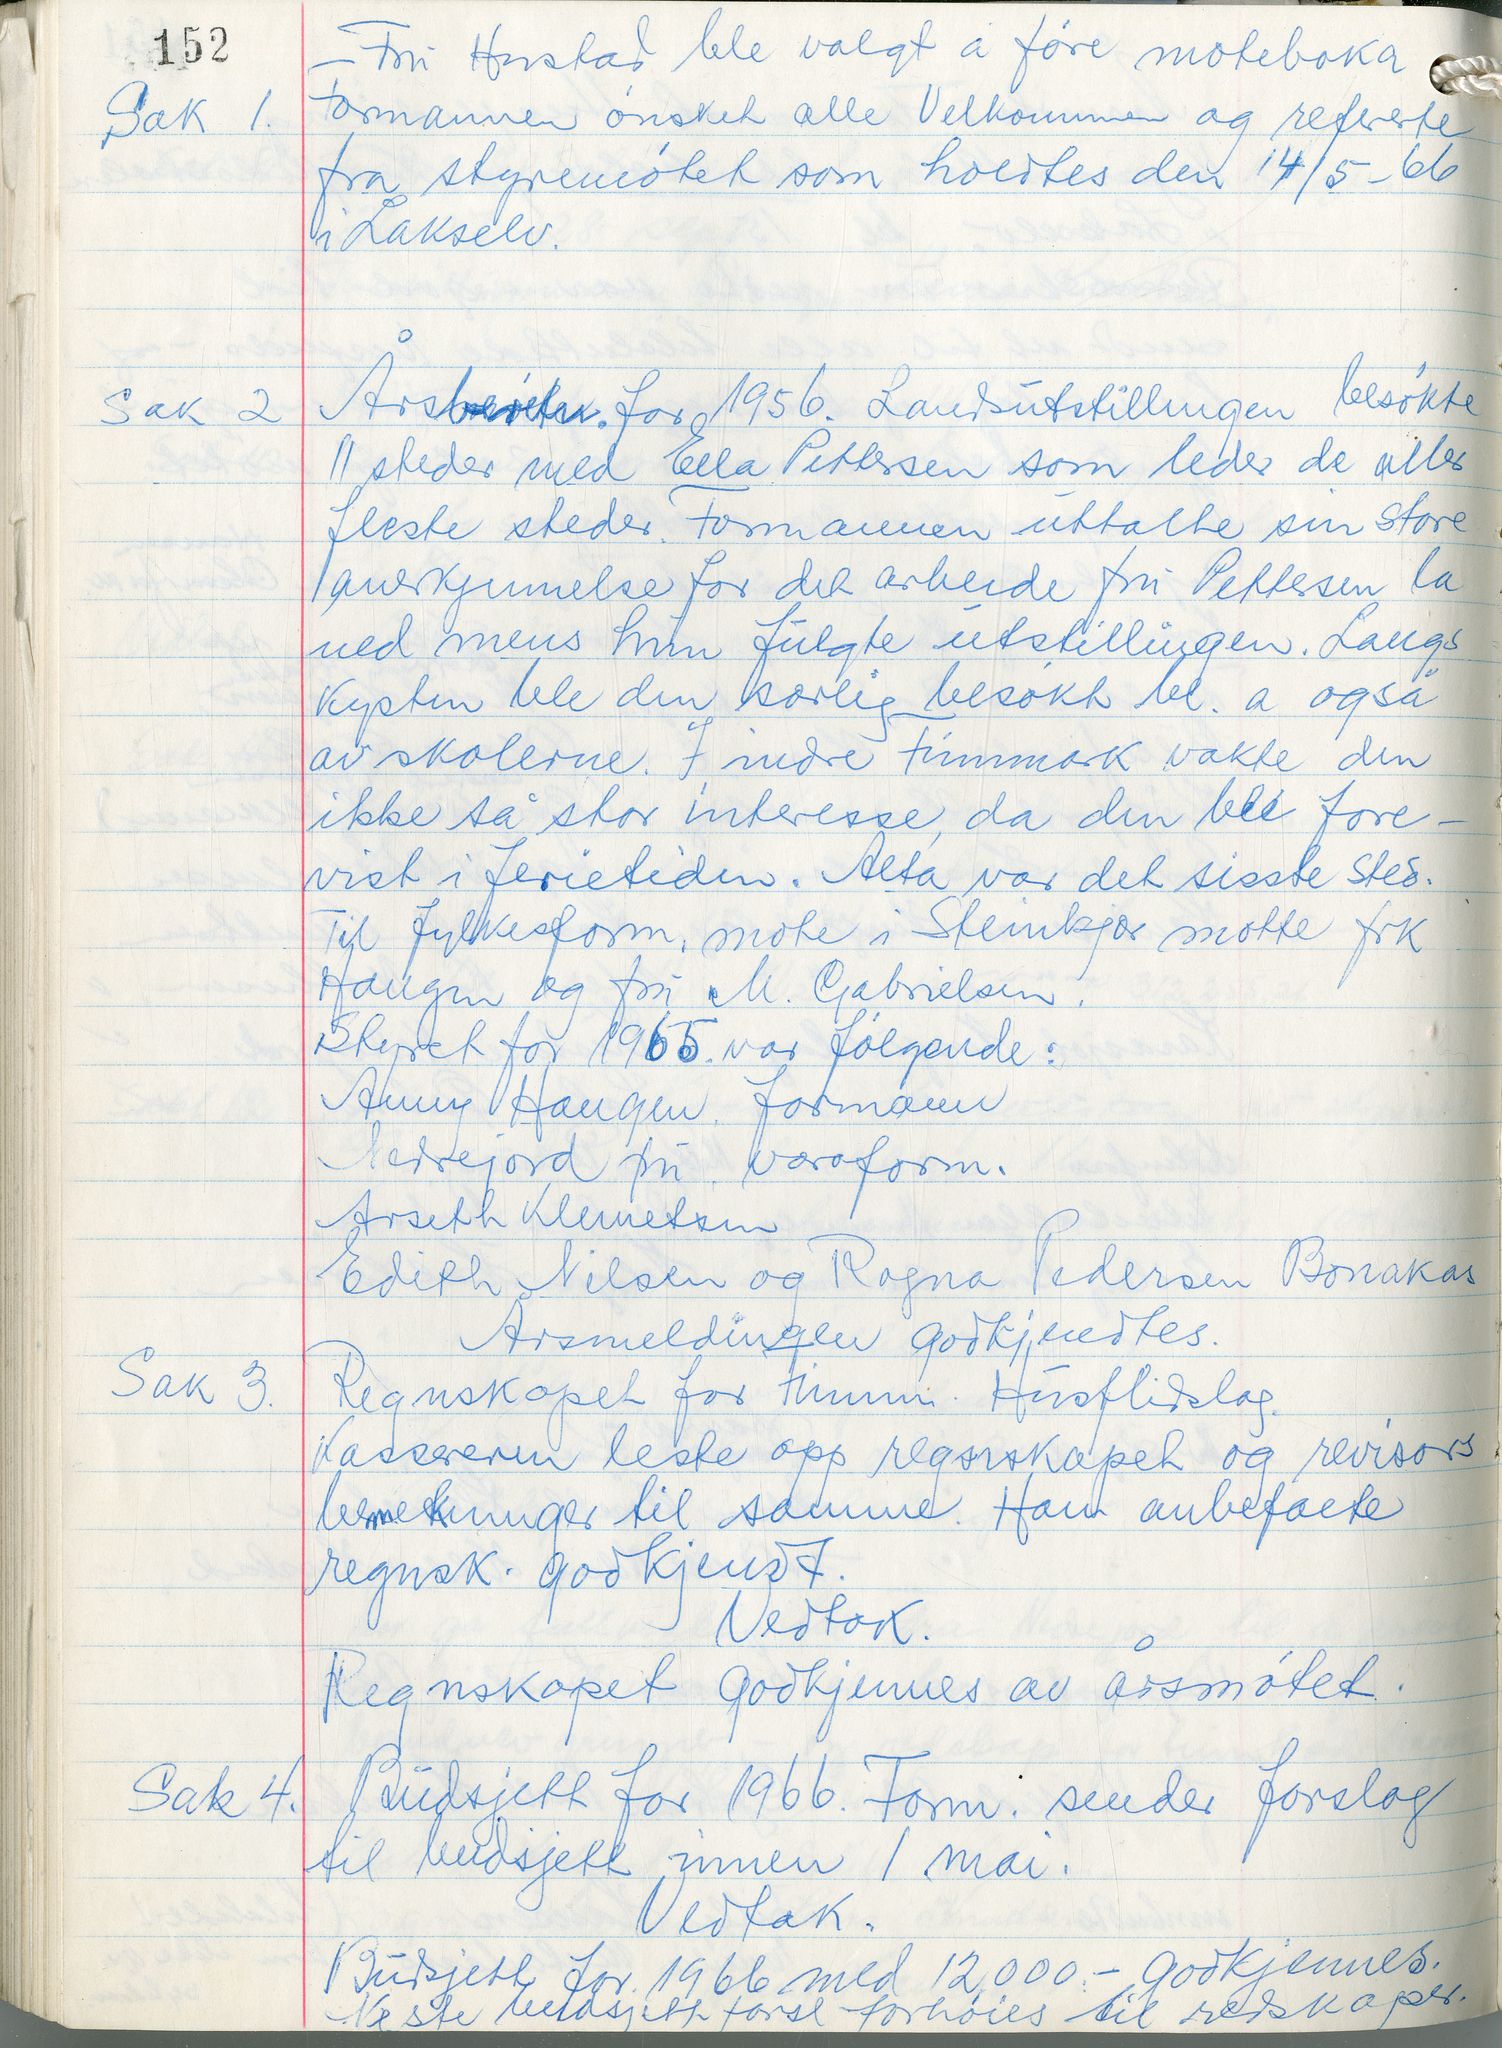 152
– Fru Hustad ble valgt å føre møteboka
Sak 1. Formannen ønsket alle Velkommen og refererte
fra styremøtet som holdtes den 14/5-66
i Lakselv.
Sak 2 Års for 1956. Landsutstillingen besøkte
11 steder med Ella Pettersen som leder de aller
fleste steder. Formannen uttalte sin store
anerkjennelse for det arbeide fru Pettersen la
ned mens hun fulgte utstillingen. Langs
Kysten ble den særlig besøkt bl. a også
av skolerne. I indre Finnmark vakte den
ikke så stor interesse, da den ble fore-
vist i ferietiden. Alta var det sisste sted.
Til fylkesform. møte i Steinkjær møtte frk
Haugen og fru M. Gabrielsen.
Styret for 1965. var følgende:
Anny Haugen. formann
Nedrejord fru varaform.
Arseth Klemetsen
Edith Nilsen og Ragna Pedersen Bonakas
Årsmeldingen godkjendtes.
Sak 3. Regnskapet for Finnm. Husflidslag.
Kassereren leste opp regnskapet og revisors
bemerkninger til samme. Han anbefalte
regnsk. godkjendt.
Vedtak.
Regnskapet godkjennes av årsmøtet.
Sak 4. Budsjett for 1966. Form. sender forslag
til budsjett innen 1 mai.
Vedtak.
Budsjett for 1966 med 12,000.- godkjennes.
Neste budsjett forsl forhøies til redskaper.